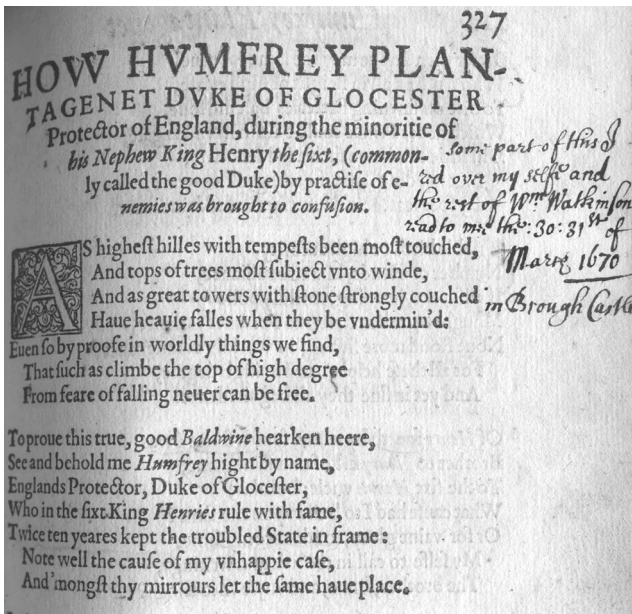 327
HOW HVMFREY PLAN-
TAGENET DVKE OF GLOCESTER
Protector of England, during the minoritie of
his Nephew King Henry the ſixt, (common-
ly called the good Duke) by practiſe of e-
nemies was brought to confuſion.
some part of this I
red over my selfe and
the rest of Wm Watkinson
read to me the: 30: 31st of
March 1670
in Brough Castle
AS higheſt hilles with tempeſts been moſt touched,
And tops of trees moſt ſubiect vnto winde,
And as great towers with ſtone ſtrongly couched
Haue heauie falles when they be vndermin'd:
Euen ſo by proofe in worldly things we find,
That ſuch as climbe the top of high degree
From feare of falling neuer can be free.
To proue this true, good Baldwine hearken heere,
See and behold me Humfrey hight by name,
Englands Protector, Duke of Gloceſter,
Who in the ſixt King Henries rule with fame,
Twice ten yeares kept the troubled State in frame:
Note well the cauſe of my vnhappie caſe,
And 'mongſt thy mirrours let the ſame haue place.